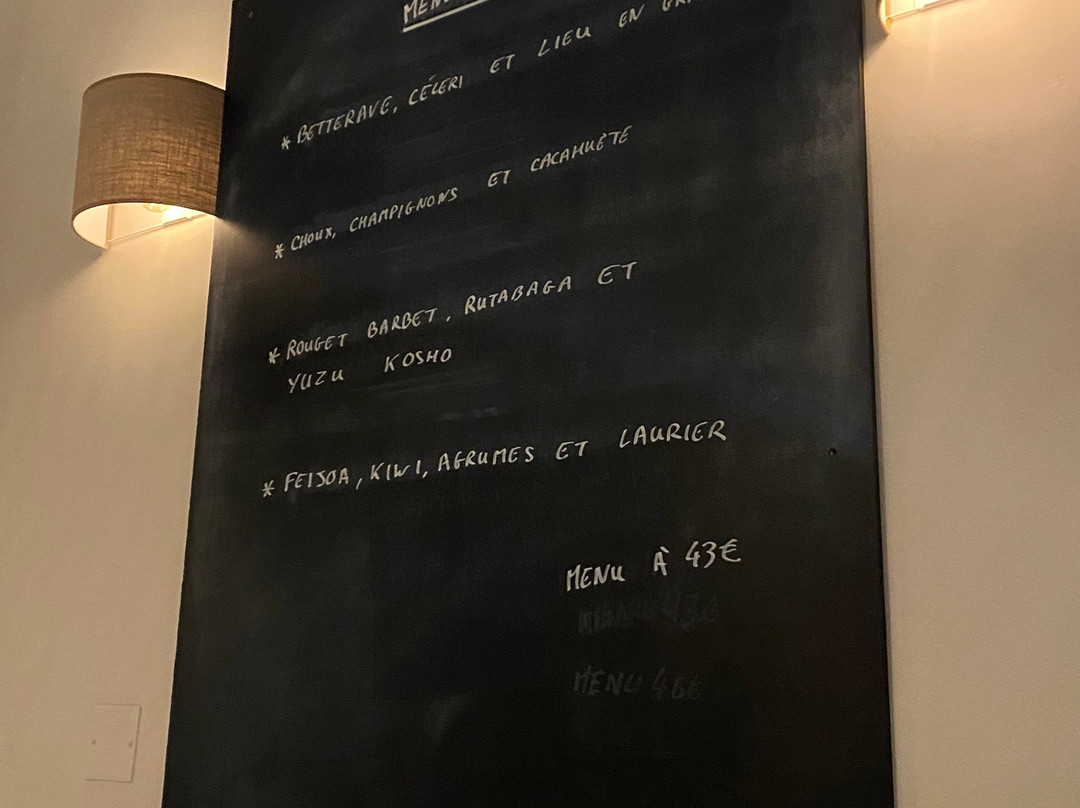 * BETTERAVE, CÉLERI ET LIEU EN
* CHOUX, CHAMPIGNONS ET CACAHUÈTE
* ROUGET BARBET, RUTABAGA ET
YUZU KOSHO
* FEIJOA, KIWI, AGRUMES ET LAURIER
MENU À 43€
MENU 46€